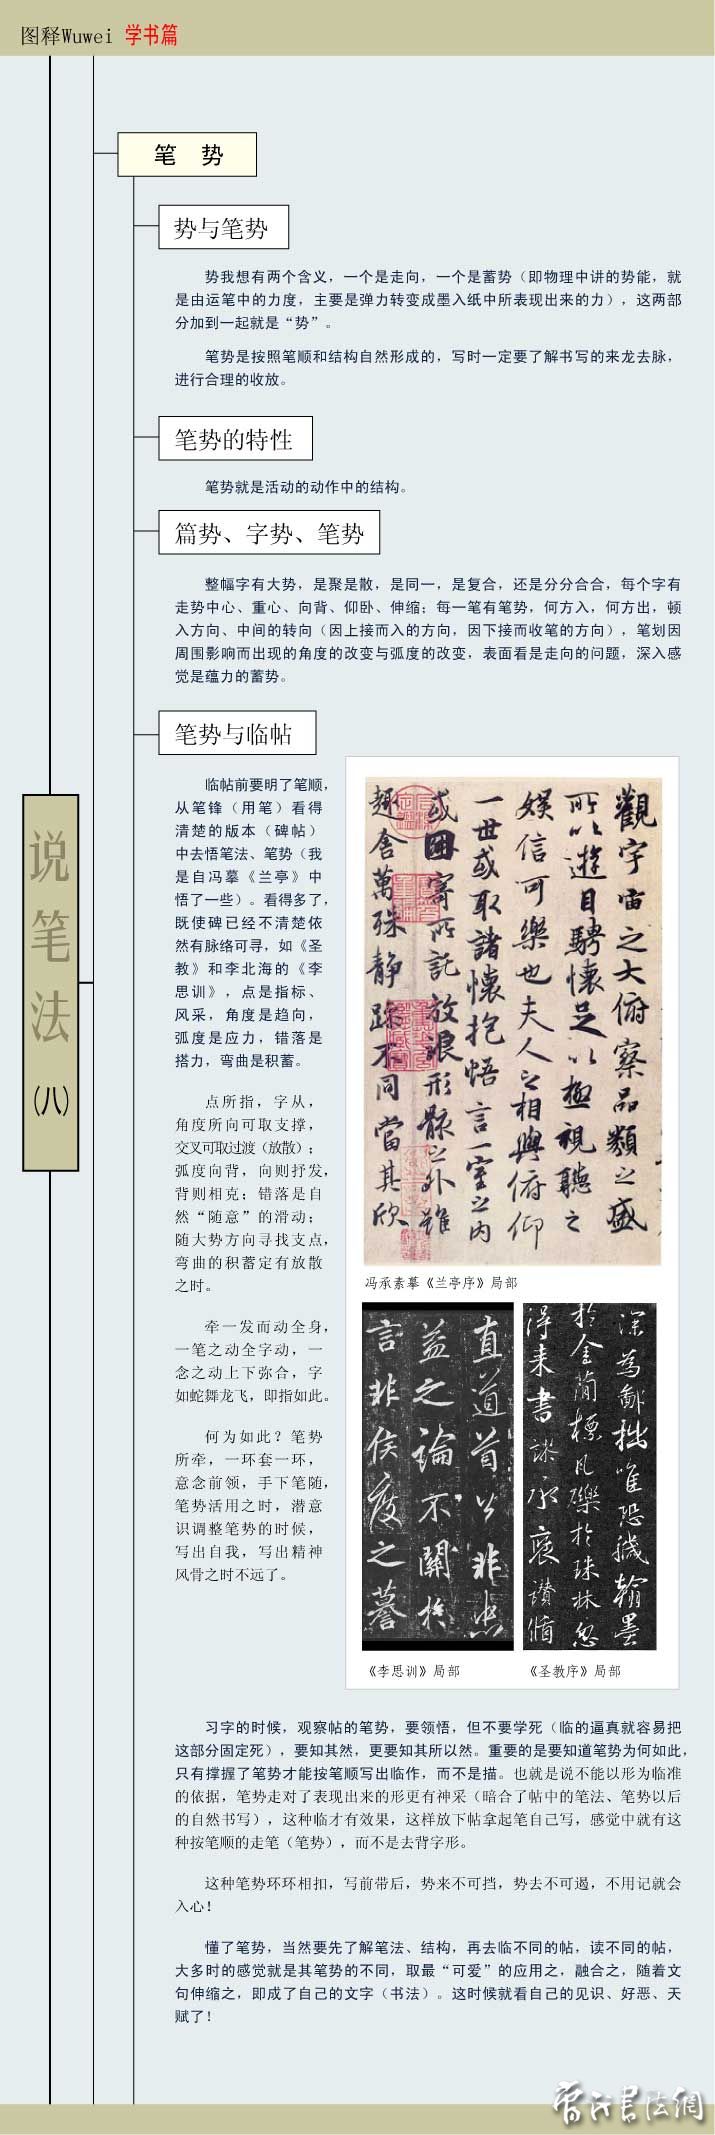 图释Wuwei 学书篇
笔 势
势与笔势
势我想有两个含义，一个是走向，一个是蓄势（即物理中讲的势能，就
是由运笔中的力度，主要是弹力转变成墨入纸中所表现出来的力），这两部
分加到一起就是“势”。
笔势是按照笔顺和结构自然形成的，写时一定要了解书写的来龙去脉，
进行合理的收放。
笔势的特性
笔势就是活动的动作中的结构。
篇势、字势、笔势
整幅字有大势，是聚是散，是同一，是复合，还是分分合合，每个字有
走势中心、重心、向背、仰卧、伸缩；每一笔有笔势，何方入，何方出，顿
入方向、中间的转向（因上接而入的方向，因下接而收笔的方向），笔划因
周围影响而出现的角度的改变与弧度的改变，表面看是走向的问题，深入感
觉是蕴力的蓄势。
笔势与临帖
临帖前要明了笔顺，
从笔锋（用笔）看得
清楚的版本（碑帖）
中去悟笔法、笔势（我
是自冯摹《兰亭》中
悟了一些）。看得多了，
既使碑已经不清楚依
然有脉络可寻，如《圣
教》和李北海的《李
思训》，点是指标、
风采，角度是趋向，
弧度是应力，错落是
搭力，弯曲是积蓄。
点所指，字从，
角度所向可取支撑，
交叉可取过渡（放散）；
弧度向背，向则抒发，
背则相克；错落是自
然“随意”的滑动；
随大势方向寻找支点，
弯曲的积蓄定有放散
之时。
牵一发而动全身，
一笔之动全字动，一
念之动上下弥合，字
如蛇舞龙飞，即指如此。
何为如此？笔势
所牵，一环套一环，
意念前领，手下笔随，
笔势活用之时，潜意
识调整笔势的时候，
写出自我，写出精神
风骨之时不远了。
说笔法
（八）
觀宇宙之大俯察品類之盛
所以遊目騁懷足以極視聽之
娛信可樂也夫人之相與俯仰
一世或取諸懷抱悟言一室之內
或因寄所託放浪形骸之外雖
趣舍萬殊静躁不同當其欣
冯承素摹《兰亭序》局部
直道首公非忠
益之論不關於
言非侯度之謩
《李思训》局部
深為鄙拙唯恐穢翰墨
於金簡標凡礫於珠林忽
得来書謬承褒讃循
《圣教序》局部
习字的时候，观察帖的笔势，要领悟，但不要学死（临的逼真就容易把
这部分固定死），要知其然，更要知其所以然。重要的是要知道笔势为何如此，
只有撑握了笔势才能按笔顺写出临作，而不是描。也就是说不能以形为临准
的依据，笔势走对了表现出来的形更有神采（暗合了帖中的笔法、笔势以后
的自然书写），这种临才有效果，这样放下帖拿起笔自己写，感觉中就有这
种按笔顺的走笔（笔势），而不是去背字形。
这种笔势环环相扣，写前带后，势来不可挡，势去不可遏，不用记就会
入心！
懂了笔势，当然要先了解笔法、结构，再去临不同的帖，读不同的帖，
大多时的感觉就是其笔势的不同，取最“可爱”的应用之，融合之，随着文
句伸缩之，即成了自己的文字（书法）。这时候就看自己的见识、好恶、天
赋了！